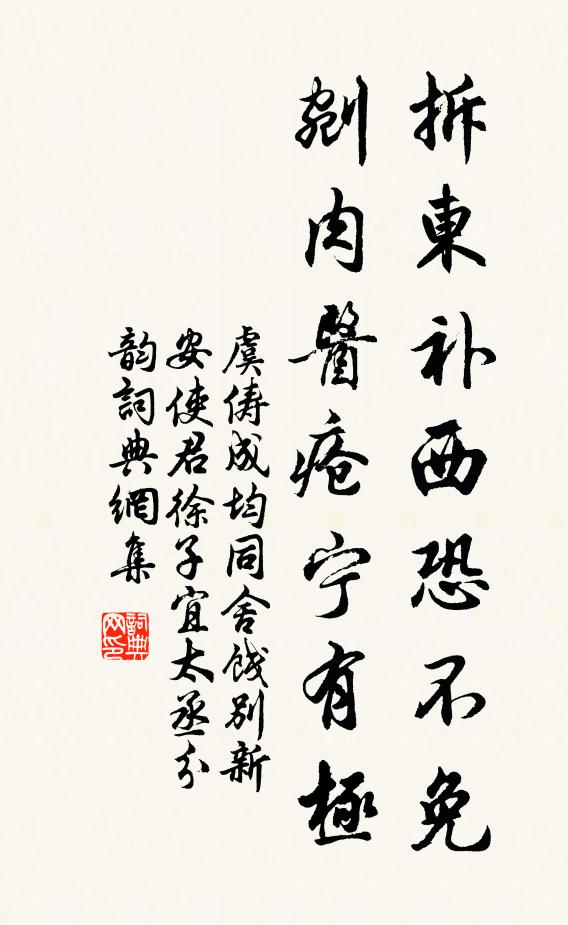 拆東补西恐不免
剜肉醫疮宁有極
虞俦成均同舍餞别新
安使君徐子宜太丞分
韵詞典網集
詞典网印